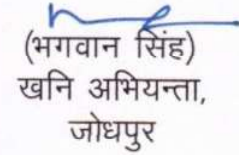 (भगवान सिंह)
खनि अभियन्ता,
जोधपुर